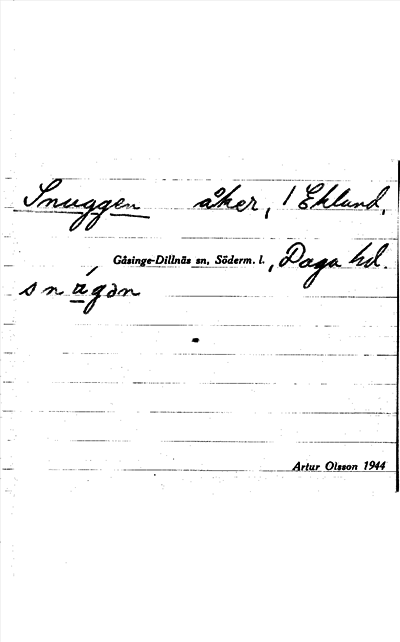 Snuggen åker, 1 Eklund,
Gåsinge-Dillnäs sn, Söderm. l., Daga hd.
Artur Olsson 1944